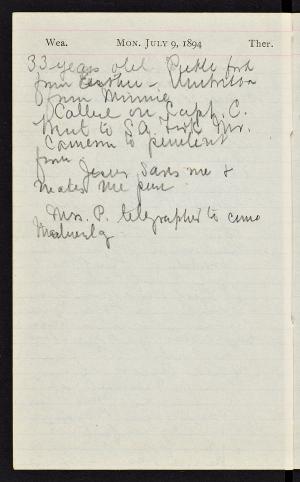 Wea. MON. JULY 9, 1894 Ther.
33 years old. Pickle fork
from Esther - Umbrella
from Minnie
Called on Capt. C.
Went to S.A. Took Mr.
Cameron to penitent
from
Jesus saves me &
makes me pure
Mrs. P. telegraphed to come